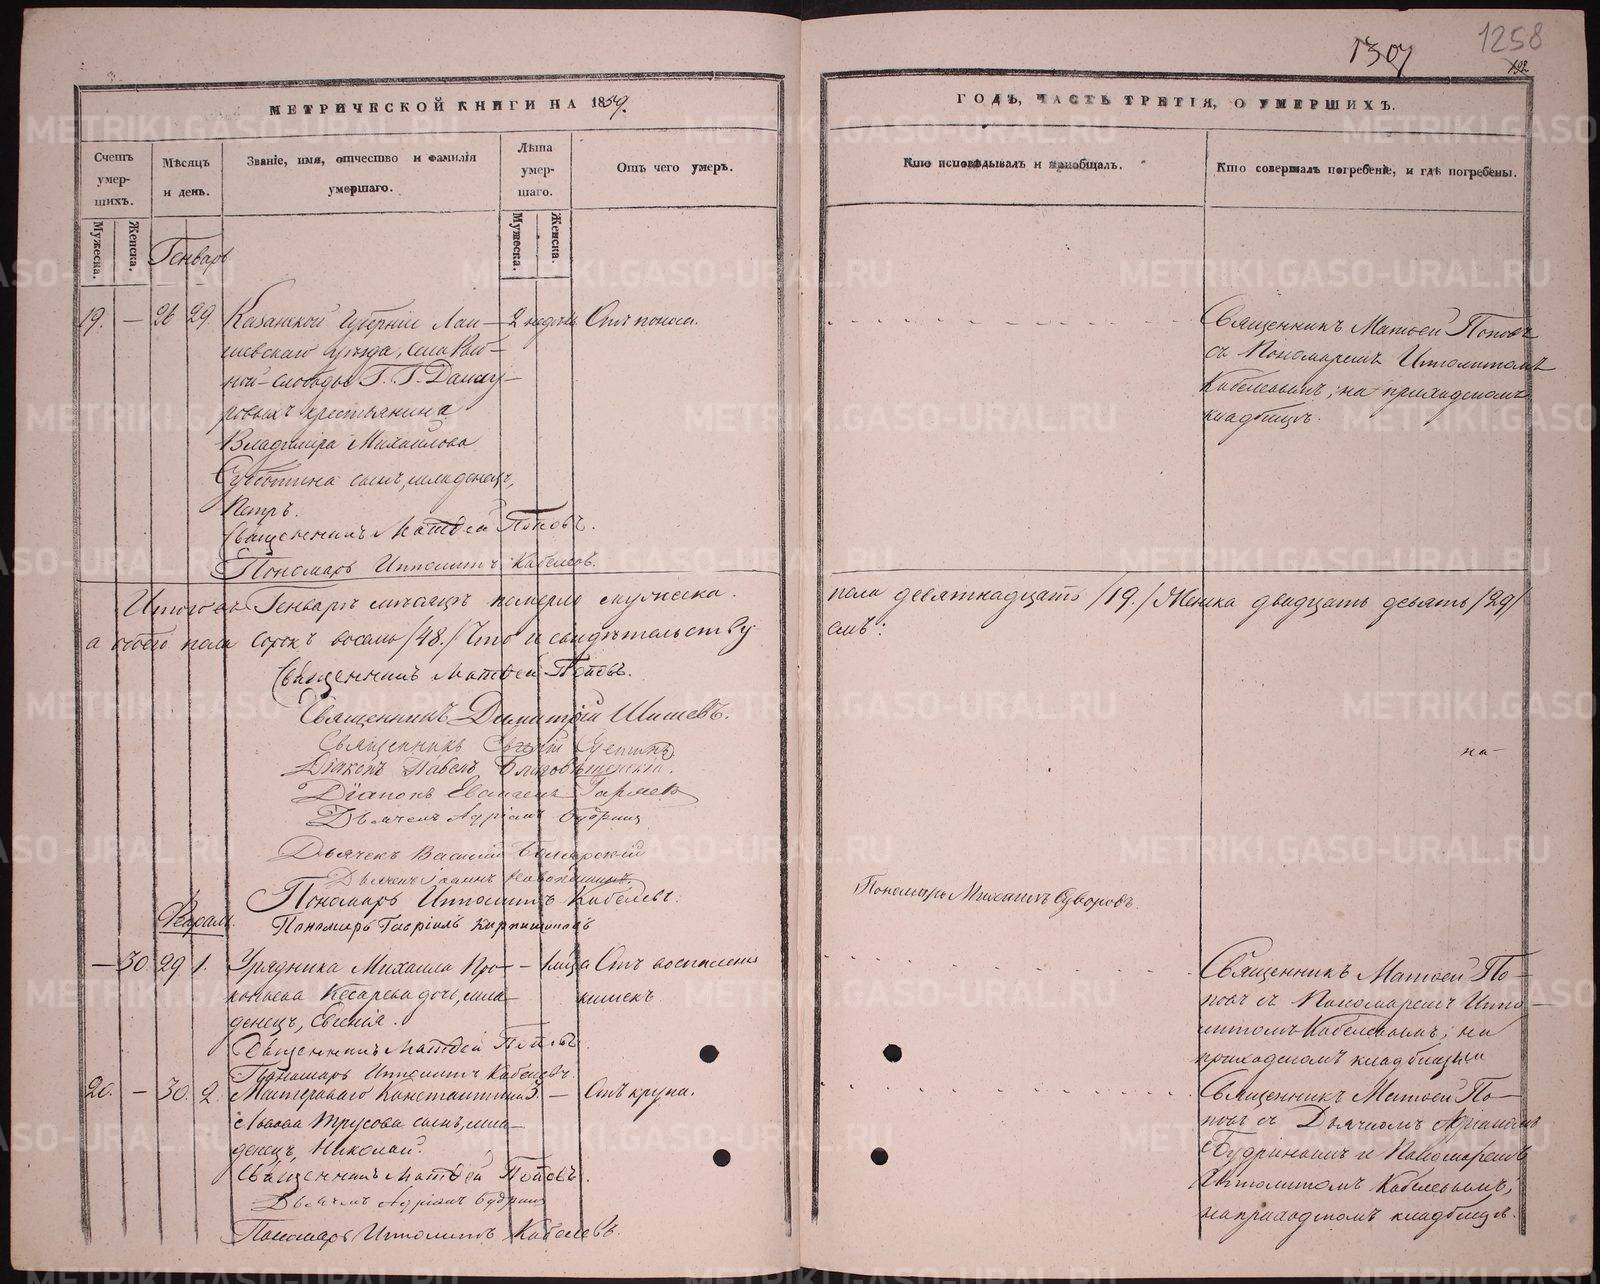 1307
1258
192
МЕТРИЧЕСКОЙ КНИГИ НА 1859.
ГОДЪ, ЧАСТЬ ТРЕТІЯ, О УМЕРШИХЪ.
Счетъ умер-шихъ.
Мѣсяцъ и день.
Званіе, имя, отчество и фамилія умершаго.
Лѣта умер-шаго.
Отъ чего умеръ.
Кто исповѣдывалъ и пріобщалъ.
Кто совершалъ погребеніе, и гдѣ погребены.
Мужеска.
Женска.
Мужеска.
Женска.
Генварь
19. — 26 29 Казанской Губерніи Лаи- 2 недѣль Отъ поноса.
шевскаго уѣзда, села
ной слободы Г. Г.
ровыхъ крестьянина
Владиміра Михайлова
Субботина сынъ, младенецъ,
Петръ.
Священникъ Матѳей Поповъ.
Пономарь Ипполитъ Кабелевъ.
Священникъ Матѳей Поповъ
съ Пономаремъ Ипполитомъ
Кабелевымъ, на приходскомъ
кладбищѣ.
Итого въ Генварѣ мѣсяцѣ померло мужеска
пола девятнадцать /19./ Женска двадцать девять /29/
а обоего пола сорокъ восемь /48./ Что и свидѣтельству
емъ:
Священникъ Матѳей Поповъ.
Священникъ Димитрій Шишевъ.
Священникъ Евгеній
Діаконъ Павелъ Благовѣщенскій.
Діаконъ
Дьячекъ Адріанъ Будринъ
Дьячекъ Василій
Дьячекъ Іоаннъ
Пономарь Ипполитъ Кабелевъ.
Пономарь Гавріилъ Кирпищиковъ
на-
Пономарь Михаилъ Суворовъ.
Февраль
— 30 29 1. Урядника Михаила Про- — 1 мѣсяца Отъ воспаленія
копьева Кесарева дочь, мла- кишекъ
денецъ, Евгенія.
Священникъ Матѳей Поповъ
Пономарь Ипполитъ Кабелевъ.
Священникъ Матѳей По-
повъ съ Пономаремъ Иппо-
литомъ Кабелевымъ, на
приходскомъ кладбищѣ
20. — 30. 2. Мастероваго Константина 3. — Отъ крупа.
Львова Трусова сынъ, мла-
денецъ, Николай.
Священникъ Матѳей Поповъ.
Дьячекъ Адріанъ Будринъ
Пономарь Ипполитъ Кабелевъ.
Священникъ Матѳей По-
повъ съ Дьячкомъ Адріаномъ
Будринымъ и Пономаремъ
Ипполитомъ Кабелевымъ,
на приходскомъ кладбищѣ.
METRIKI.GASO-URAL.RU